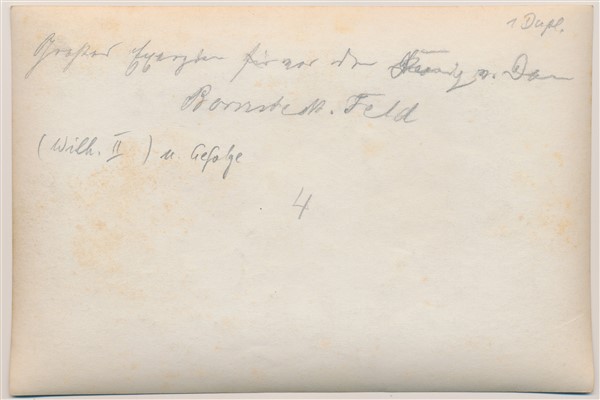 1 Dupl.
Großes Exerzieren vor dem König u. Dem
Bornstedt. Feld
(Wilh. II) u. Gefolge
4